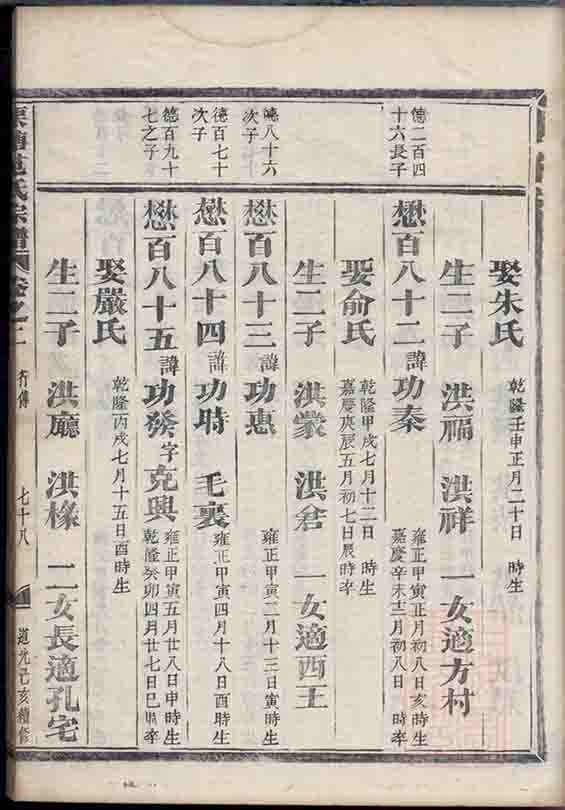 娶朱氏 乾隆壬申正月二十日 時生
生二子 洪福 洪祥 一女適方村
德二百四十六長子
懋百八十二 諱 功泰 雍正甲寅正月初八日亥時生 嘉慶辛未十二月初八日 時卒
娶俞氏 乾隆甲戌七月十二日 時生 嘉慶庚辰五月初七日辰時卒
生二子 洪 洪君 一女適西王
德八十六次子
懋百八十三 諱 功惠 雍正甲寅二月十三日寅時生
德百七十次子
懋百八十四 諱 功時 毛裏 雍正甲寅四月十八日酉時生
德百九十七之子
懋百八十五 諱 功發 字 克興 雍正甲寅五月廿八日申時生 乾隆癸卯四月廿七日巳時卒
娶嚴氏 乾隆丙戌七月十五日酉時生
生二子 洪廳 洪椽 二女長適孔宅
氏宗譜 卷之二 行傳 七十八 道光己亥續修